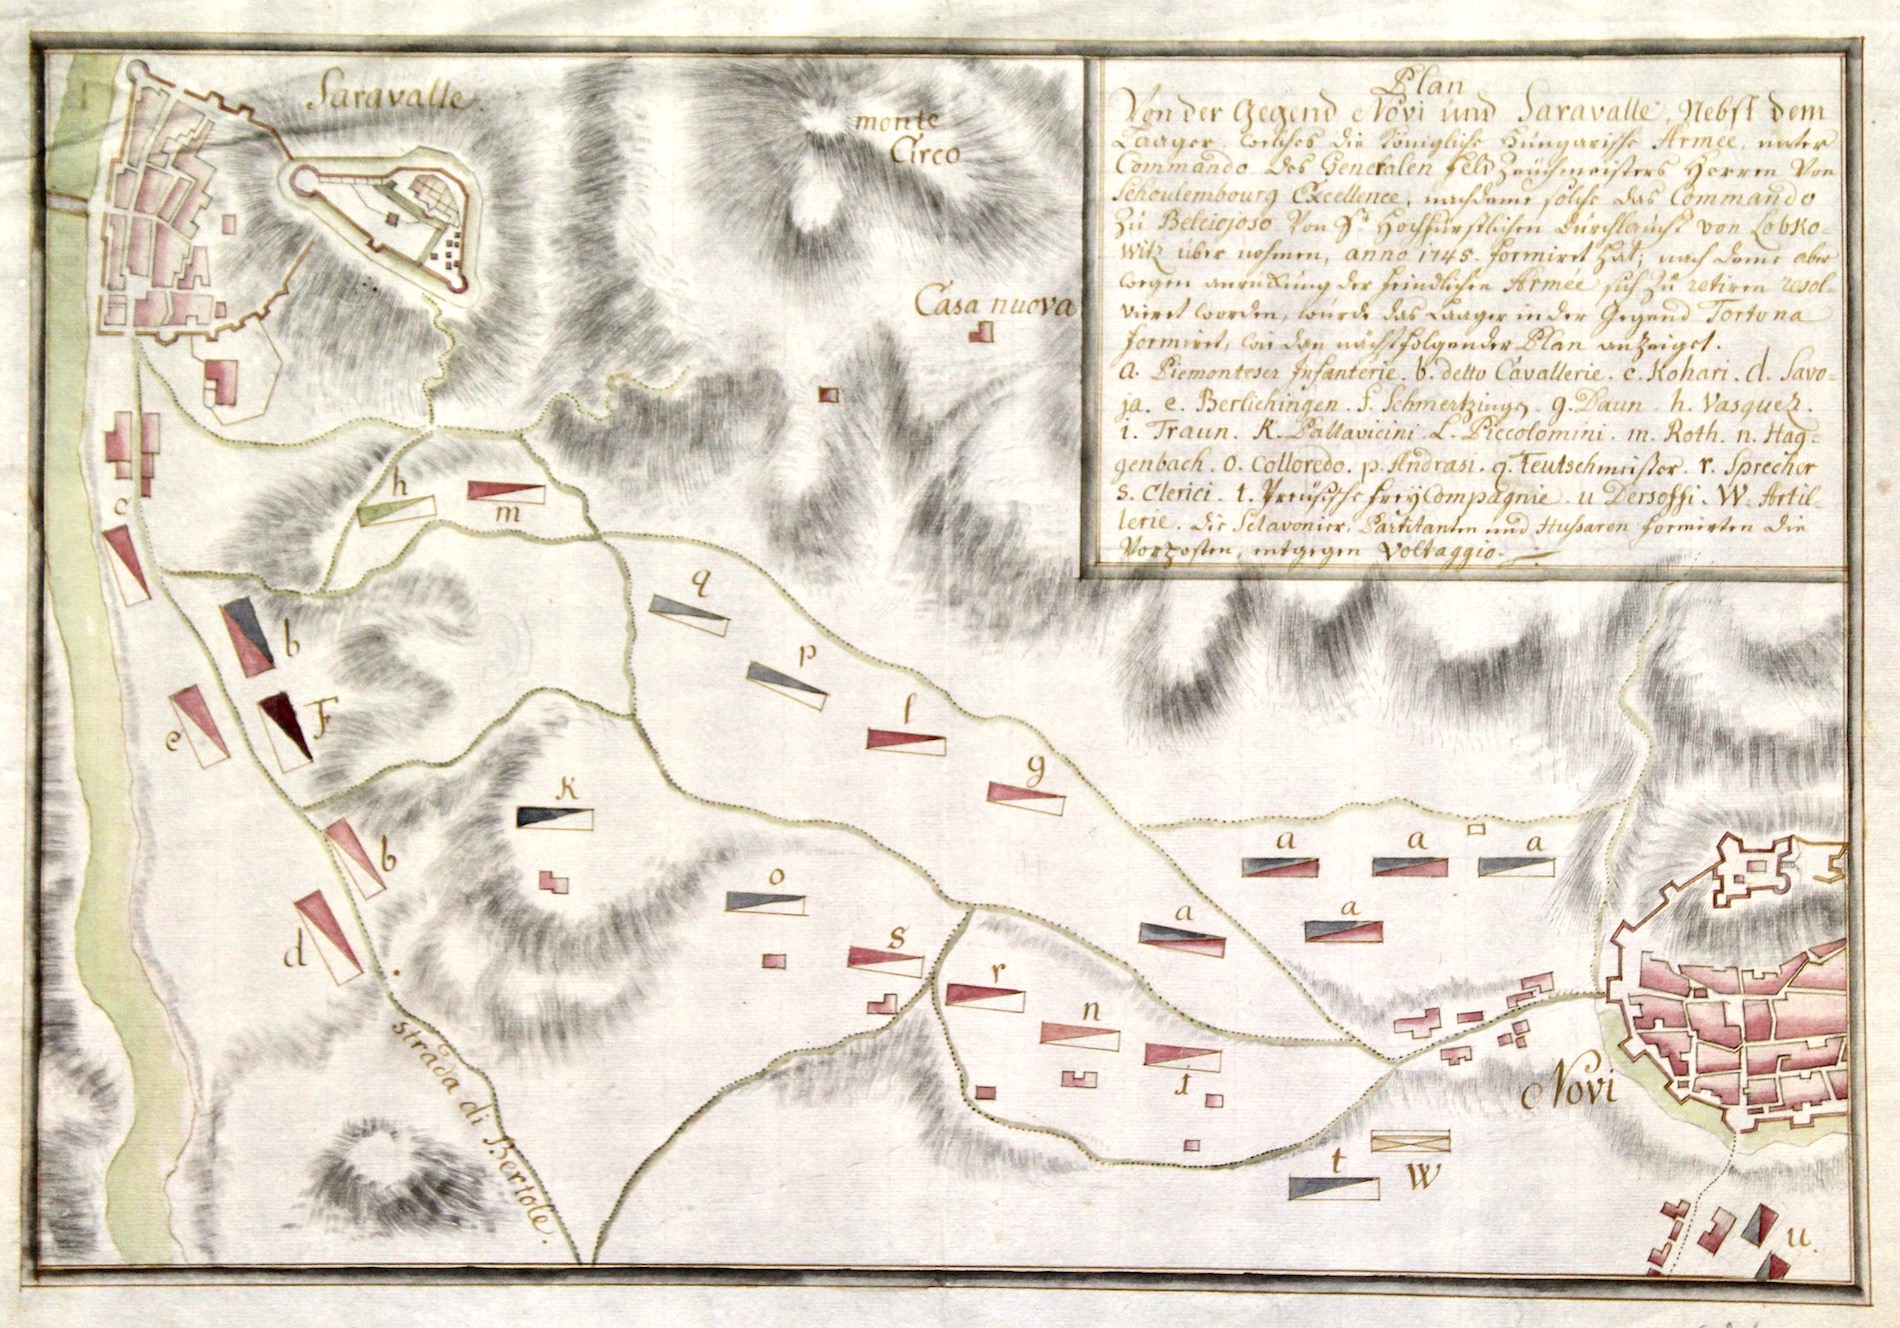 Saravalle.
monte
Circo
Casa nuova
Plan
Von der Gegend Novi und Saravalle, Nebst dem
Laager, welches die Königliche Hungarische Armée, unter
Commando des Generalen Feld Zeüchmeisters Herren Von
Schoulembourg Excellence, nachdeme solche das Commando
Zu Belciojoso Von Sr Hochfürstlichen Durchlaucht von Lobko-
witz über nohmen, anno 1745. formiret hat; nach deme aber
wegen anruckung der feindlichen Armée sich zu retiren resol-
viret worden, wurde das Laager in der Gegend Tortona
formiret, wie der nächst folgender Plan anzeiget.
a. Piemonteser Infanterie. b. detto Cavallerie. c. Kohari. d. Savo=
ja. e. Berlichingen. f. Schmertzing. g. Daun. h. Vasquez.
i. Traun. K. Pallavicini. L. Piccolomini. m. Roth. n. Hag=
genbach. O. Colloredo. p. Andrasi. q. Teutschmeister. r. Sprecher
s. Clerici. t. Preüsische Frey Compagnie. u Dersoffi. W. Artil-
lerie. Die Sclavonier, Partitanten und Hussaren formirten die
Vorposten, entgegen Voltaggio.
h
m
c
q
b
p
F
l
e
g
K
a
a
a
b
o
a
a
d
s
r
n
i
strada di Bertole.
Novi
t
W
u.